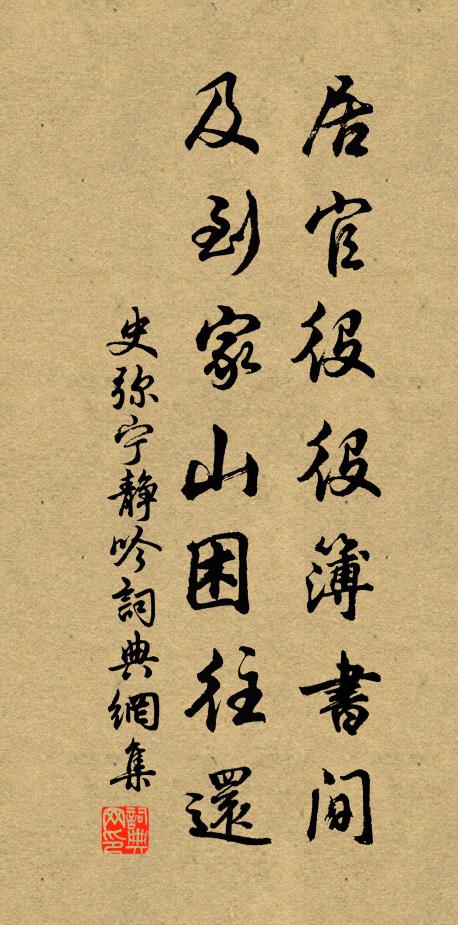 居官役役簿書间
及到家山困往還
史弥宁静吟詞典網集
詞典网印